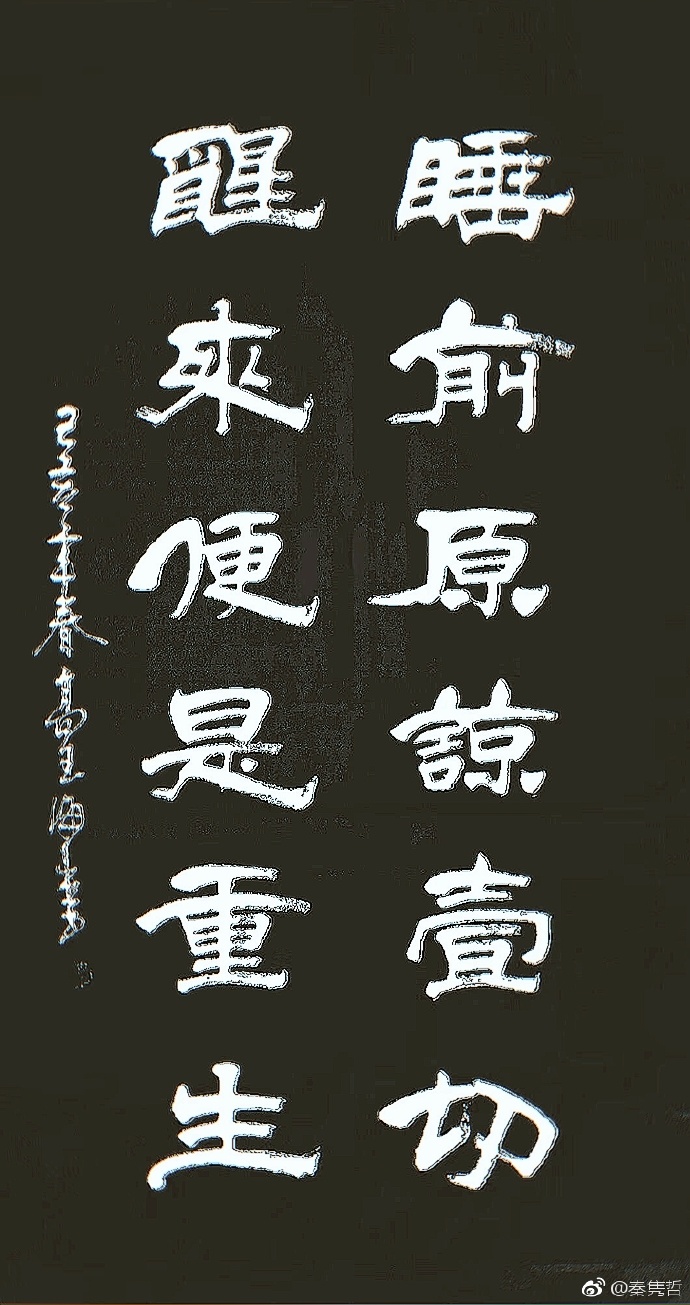 睡前原諒壹切
醒來便是重生
己亥年春高玉海書
@秦隽哲